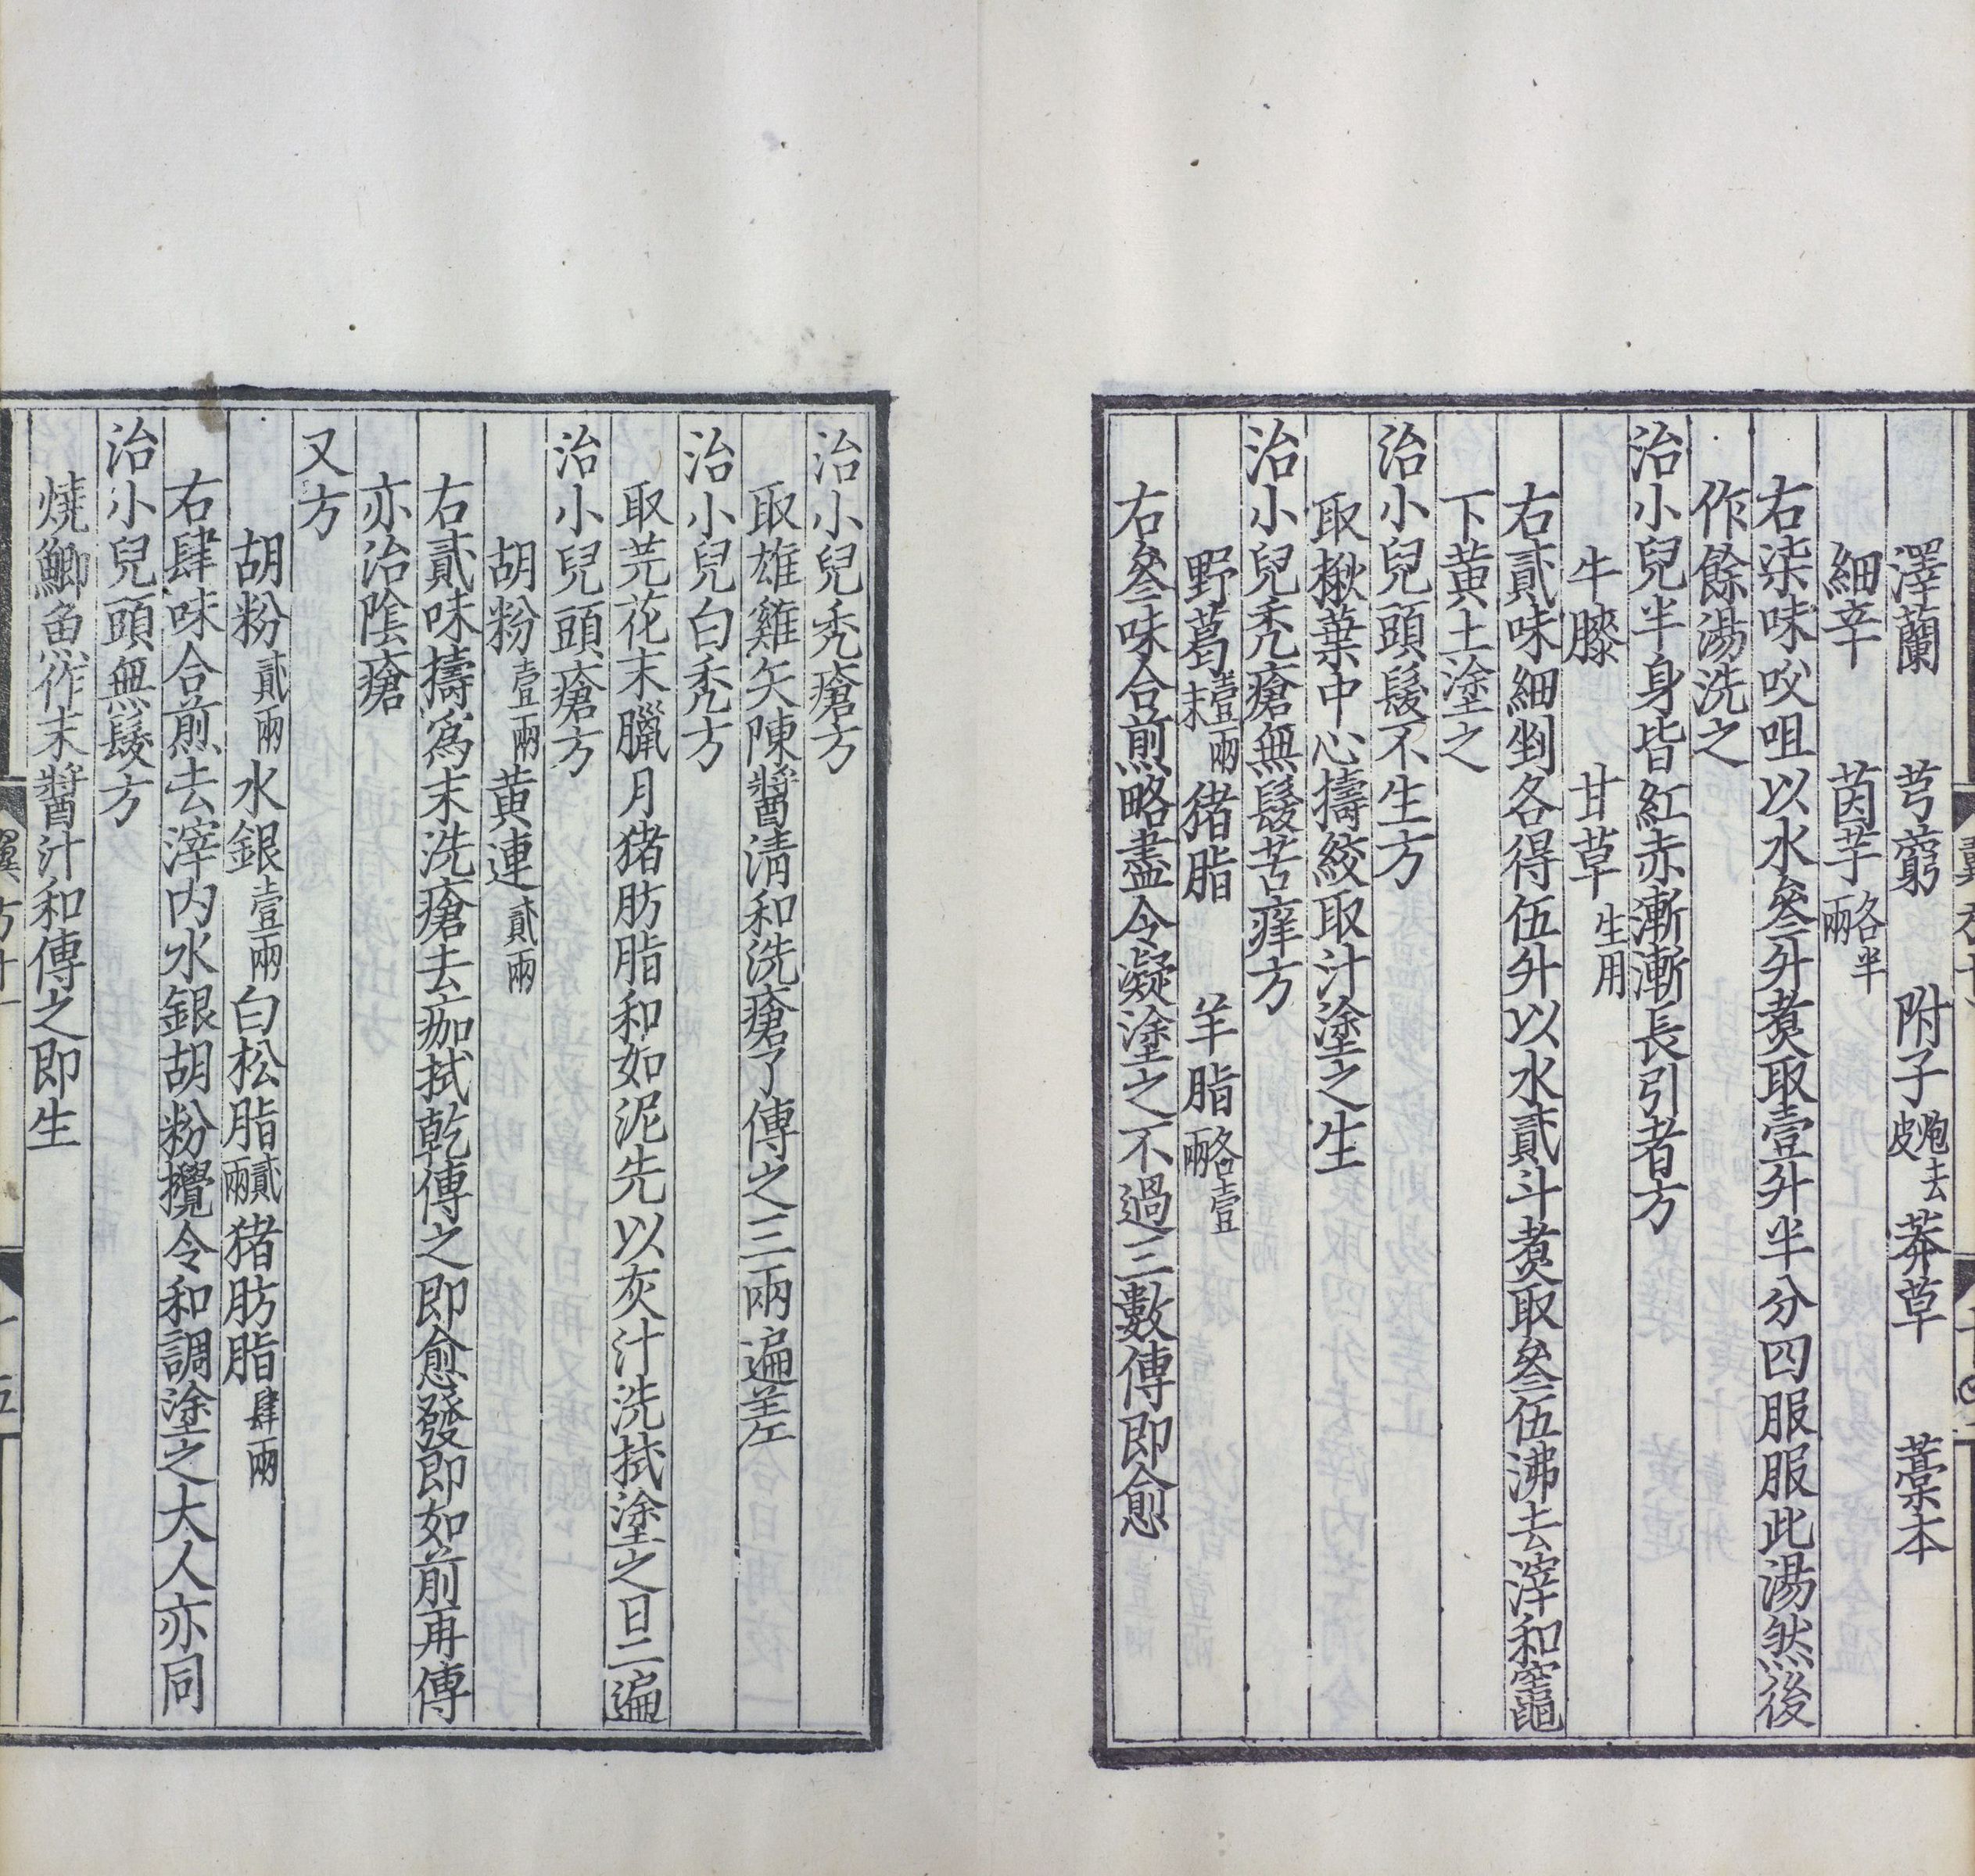 澤蘭 芎藭 附子炮去皮 莽草 藁本
細辛 茵芋各半兩
右柒味㕮咀以水叄升煑取壹升半分四服服此湯然後
作餘湯洗之
治小兒半身皆紅赤漸漸長引者方
牛膝 甘草生用
右貳味細剉各得伍升以水貳斗煑取叄伍沸去滓和竈
下黃土塗之
治小兒頭髮不生方
取楸葉中心擣絞取汁塗之生
治小兒禿瘡無髮苦痒方
野葛壹兩末 猪脂 羊脂各壹兩
右叄味合煎略盡令凝塗之不過三數傅即愈
治小兒禿瘡方
取雄雞矢陳醬清和洗瘡了傅之三兩遍差
治小兒白禿方
取芫花末臘月猪肪脂和如泥先以灰汁洗拭塗之日二遍
治小兒頭瘡方
胡粉壹兩黃連貳兩
右貳味擣爲末洗瘡去痂拭乾傅之即愈發即如前再傅
亦治陰瘡
又方
胡粉貳兩水銀壹兩白松脂貳兩猪肪脂肆兩
右肆味合煎去滓内水銀胡粉攪令和調塗之大人亦同
治小兒頭無髮方
燒鯽魚作末醬汁和傅之即生
翼方十一